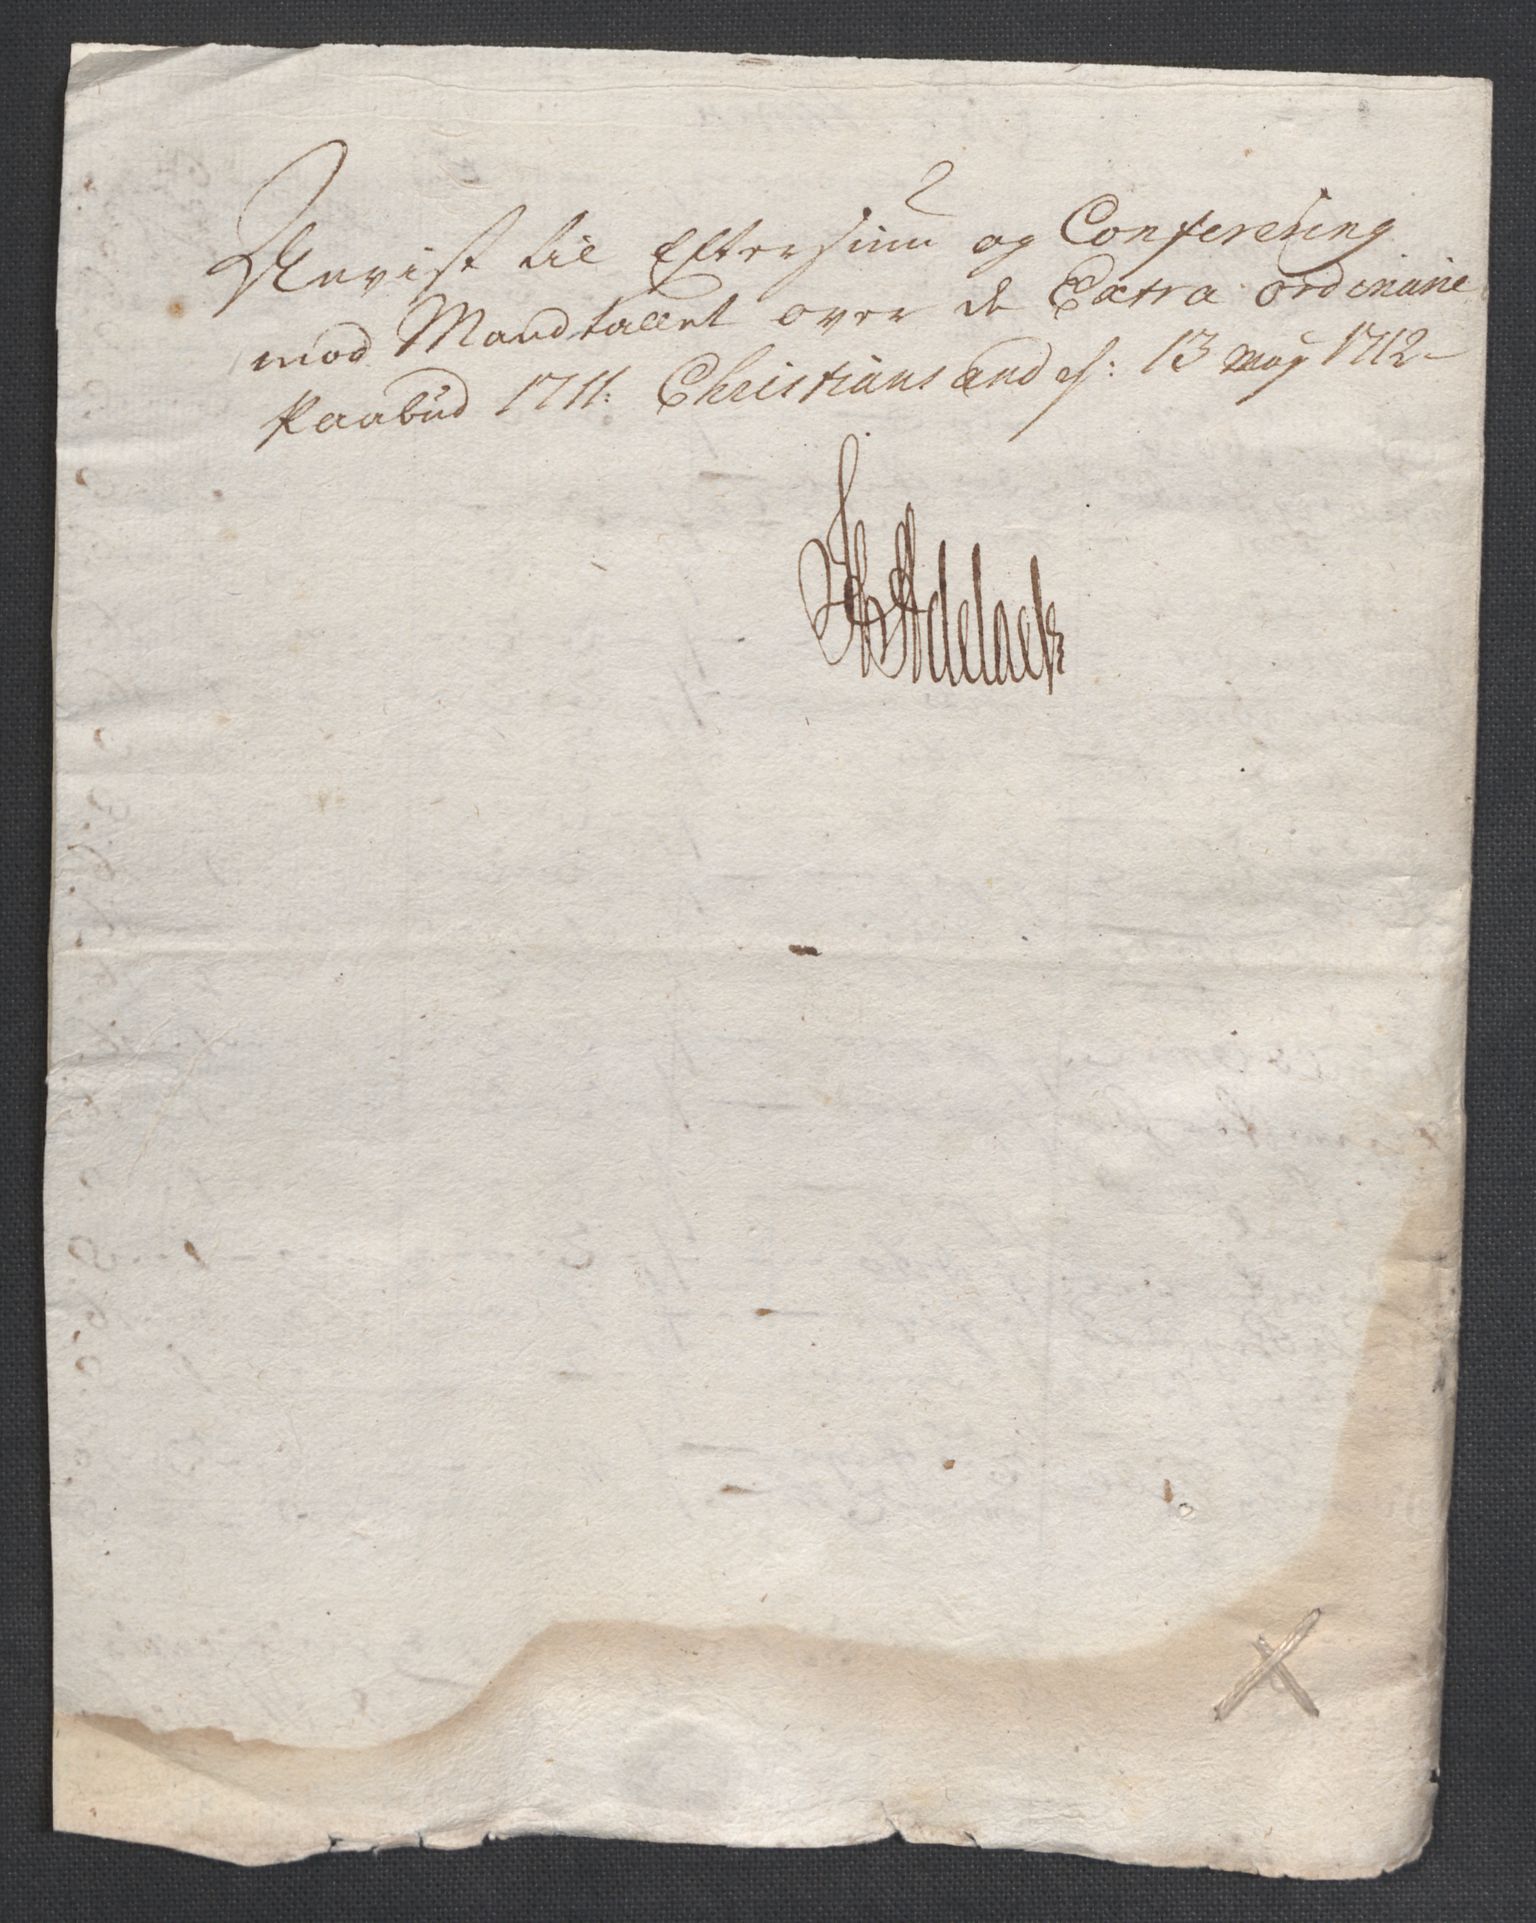 Anvist til Eftersiun og Conferering
mod Mandtallet over de Extra ordinarie
Paabud 1711. Christiansand d: 13 May 1712
Adelaer